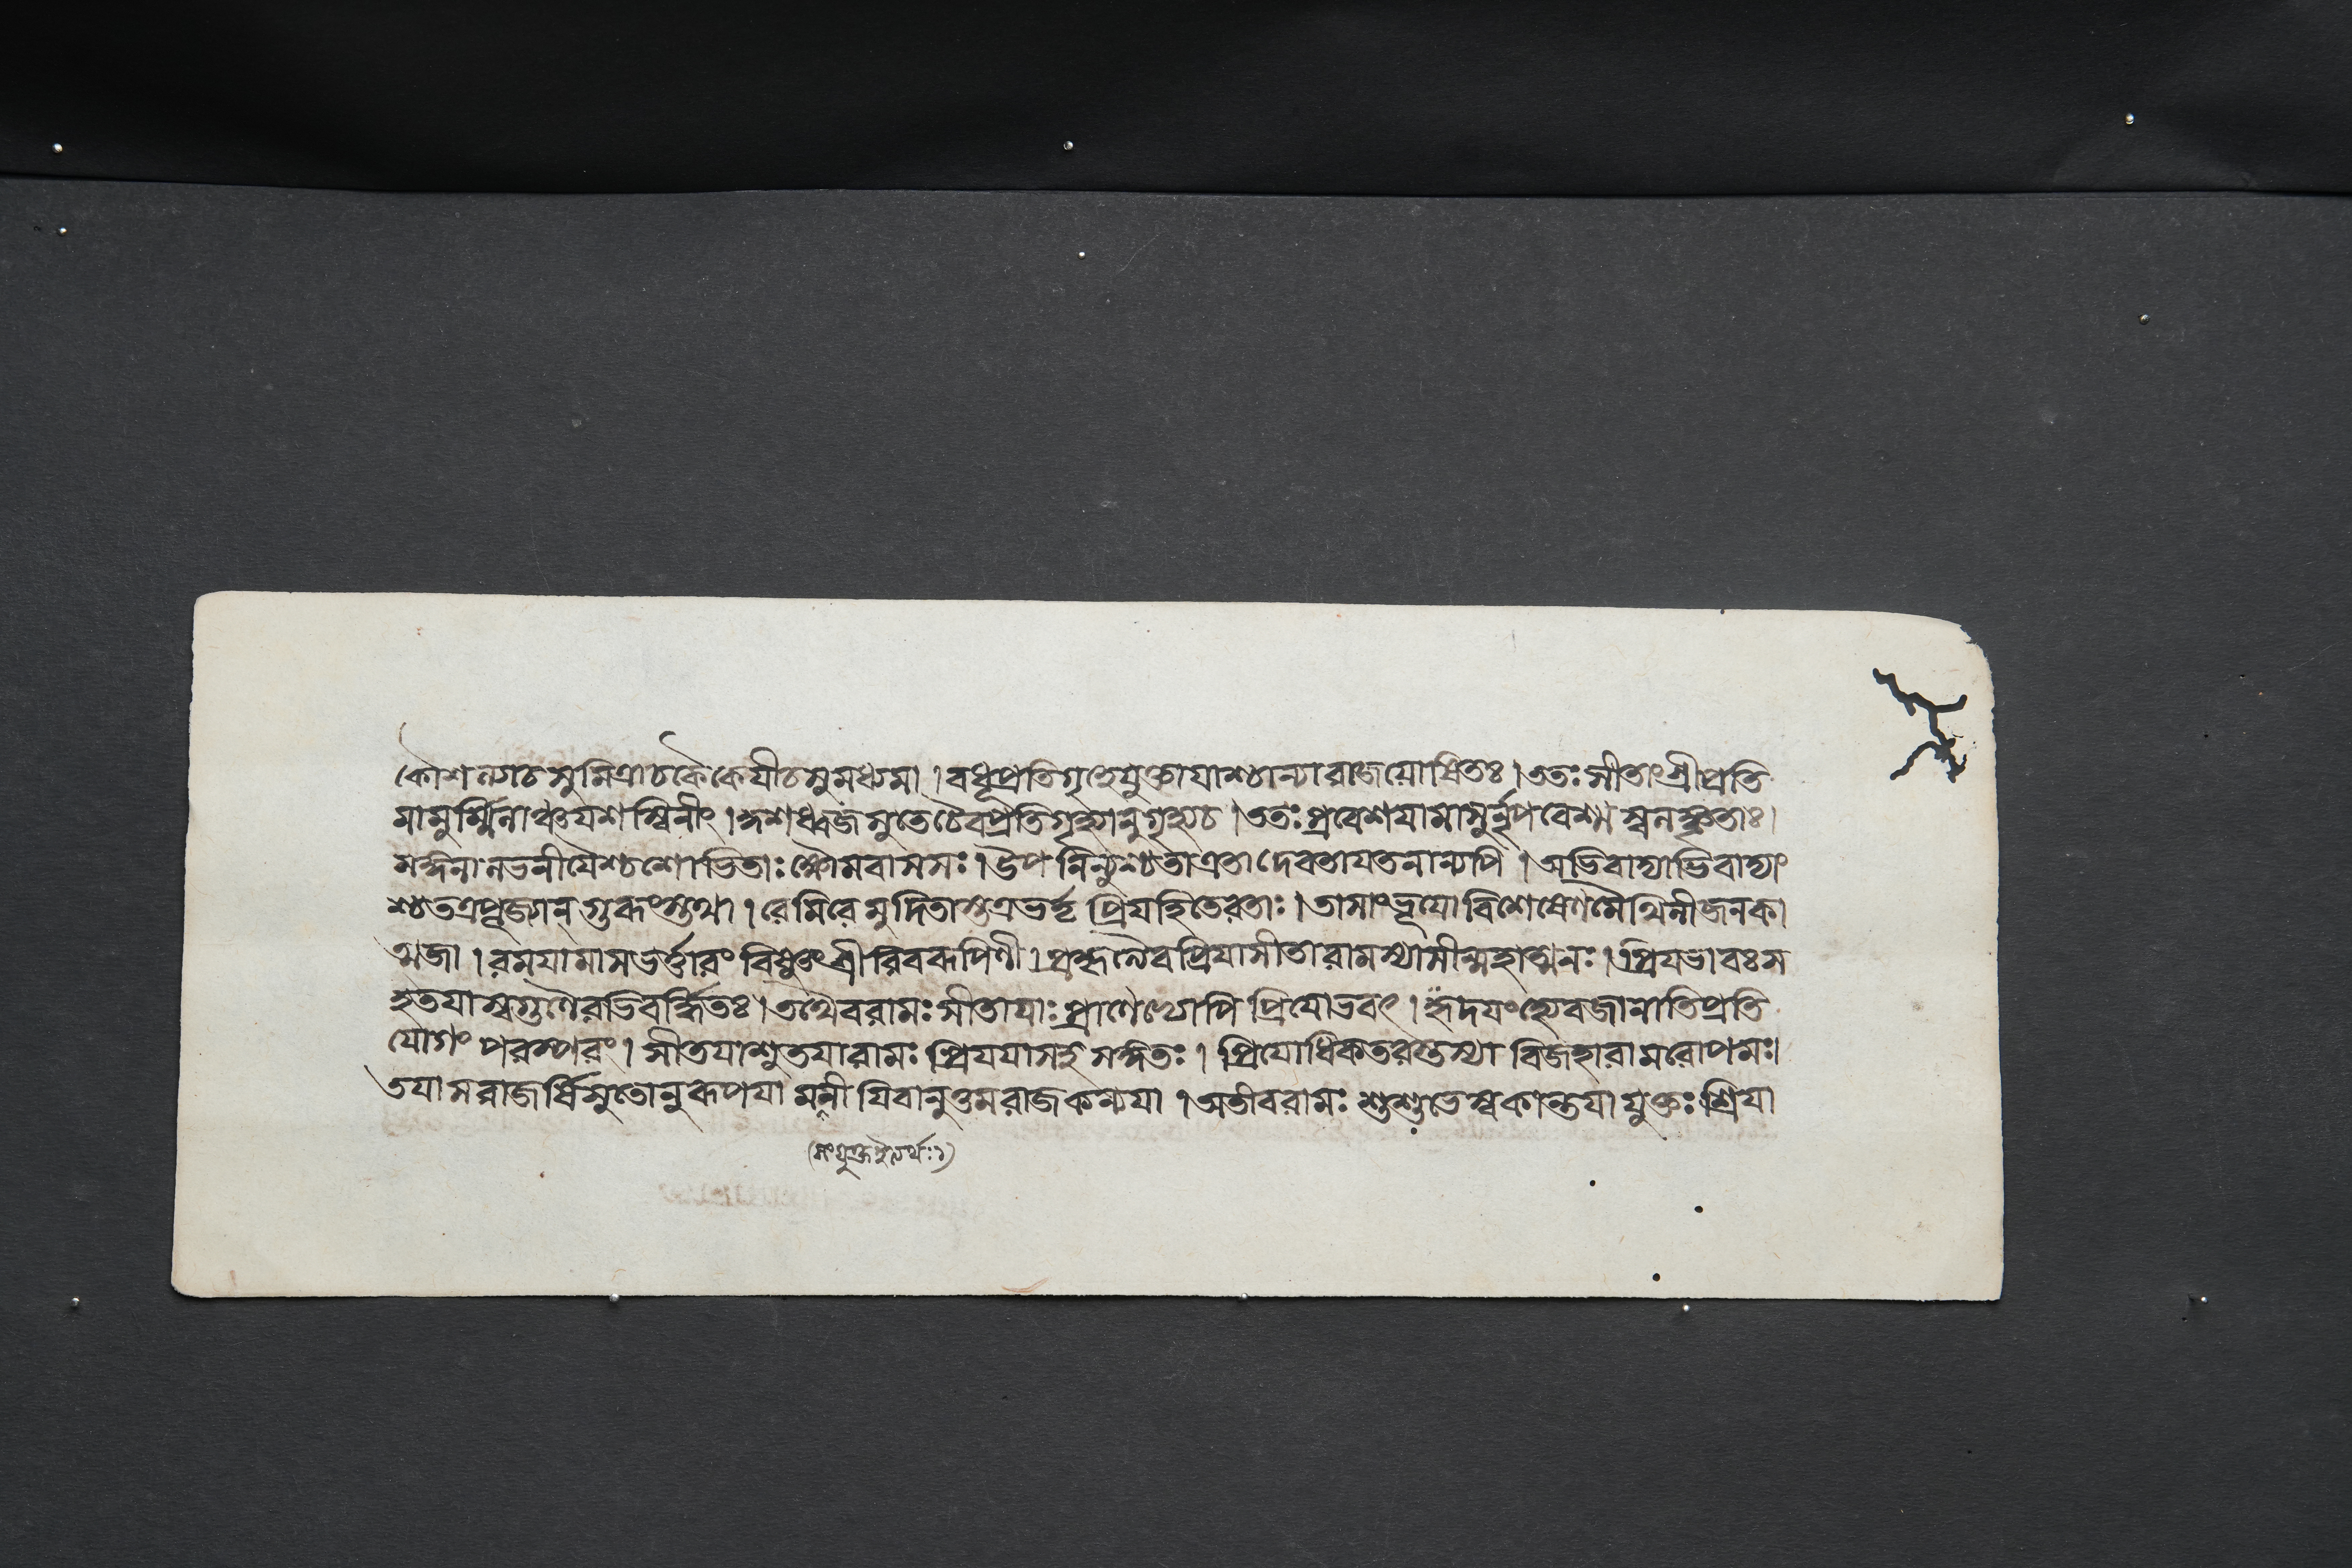 কৌশল্যাচসুমিত্রাচকৈকেযীচসুমধ্যমা । বধূপ্রতিগৃহেযুক্তাযাশ্চান্যারাজযোষিতঃ । ততঃ সীতাংশ্রীপ্রতি
মামুর্ম্মিলাঞ্চযশস্বিনীং । কুশধ্বজসুতেচৈবপ্রতিগৃহ্যানুগৃহ্যচ । ততঃ প্রবেশযামাসুর্নৃপবেশ্মস্বলঙ্কৃতাঃ ।
মঙ্গলালভনীযৈশ্চশোভিতাঃ ক্ষৌমবাসসঃ । উপনিন্যুশ্চতাএতাদেবতাযতনান্যপি । অভিবাদ্যাভিবাদ্যাং
শ্চতত্রপূজ্যান্ গুরূংস্তথা । রেমিরেমুদিতাস্তত্রভর্তৃপ্রিযহিতেরতাঃ । তাসাংভূযোবিশেষেণমৈথিলীজনকা
ত্মজা । রমযামাসভর্ত্তারং বিষ্ণুংশ্রীরিবরূপিণী । প্রকৃত্যৈবপ্রিযাসীতারামস্যাসীন্মহাত্মনঃ । প্রিযভাবঃস
হতযাস্বগুণৈরভিবর্দ্ধিতঃ । তথৈবরামঃ সীতাযাঃ প্রাণেভ্যোপি প্রিযোভবৎ । হৃদযংহ্যেবজানাতিপ্রতি
যোগং পরস্পরং । সীতযাশুতযারামঃ প্রিযযাসহসঙ্গতঃ । প্রিযোধিকতরস্তস্যা বিজহারামরোপমঃ।
তযাসরাজর্ষিসুতোনুরূপযা মনীযিবানুত্তমরাজকন্যযা । অতীবরামঃ শুশুভেস্বকান্তযা যুক্তঃ শ্রিযা